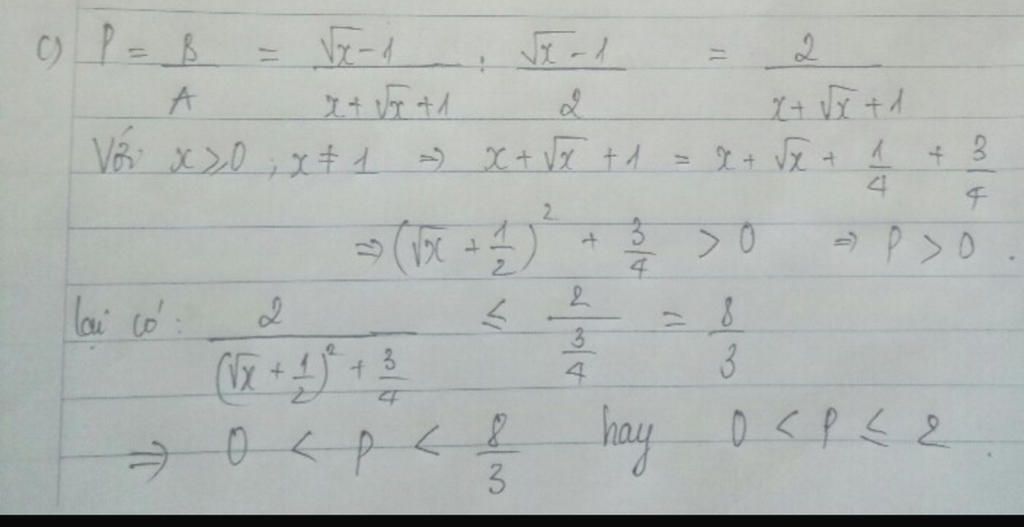 c) P = B/A = (√x - 1)/(x + √x + 1) : (√x - 1)/2 = 2/(x + √x + 1)
Với x ≥ 0 ; x ≠ 1 ⇒ x + √x + 1 = x + √x + 1/4 + 3/4
⇒ (√x + 1/2)² + 3/4 > 0 ⇒ P > 0 .
lại có : 2/((√x + 1/2)² + 3/4) ≤ 2/(3/4) = 8/3
⇒ 0 < P < 8/3 hay 0 < P ≤ 2 .